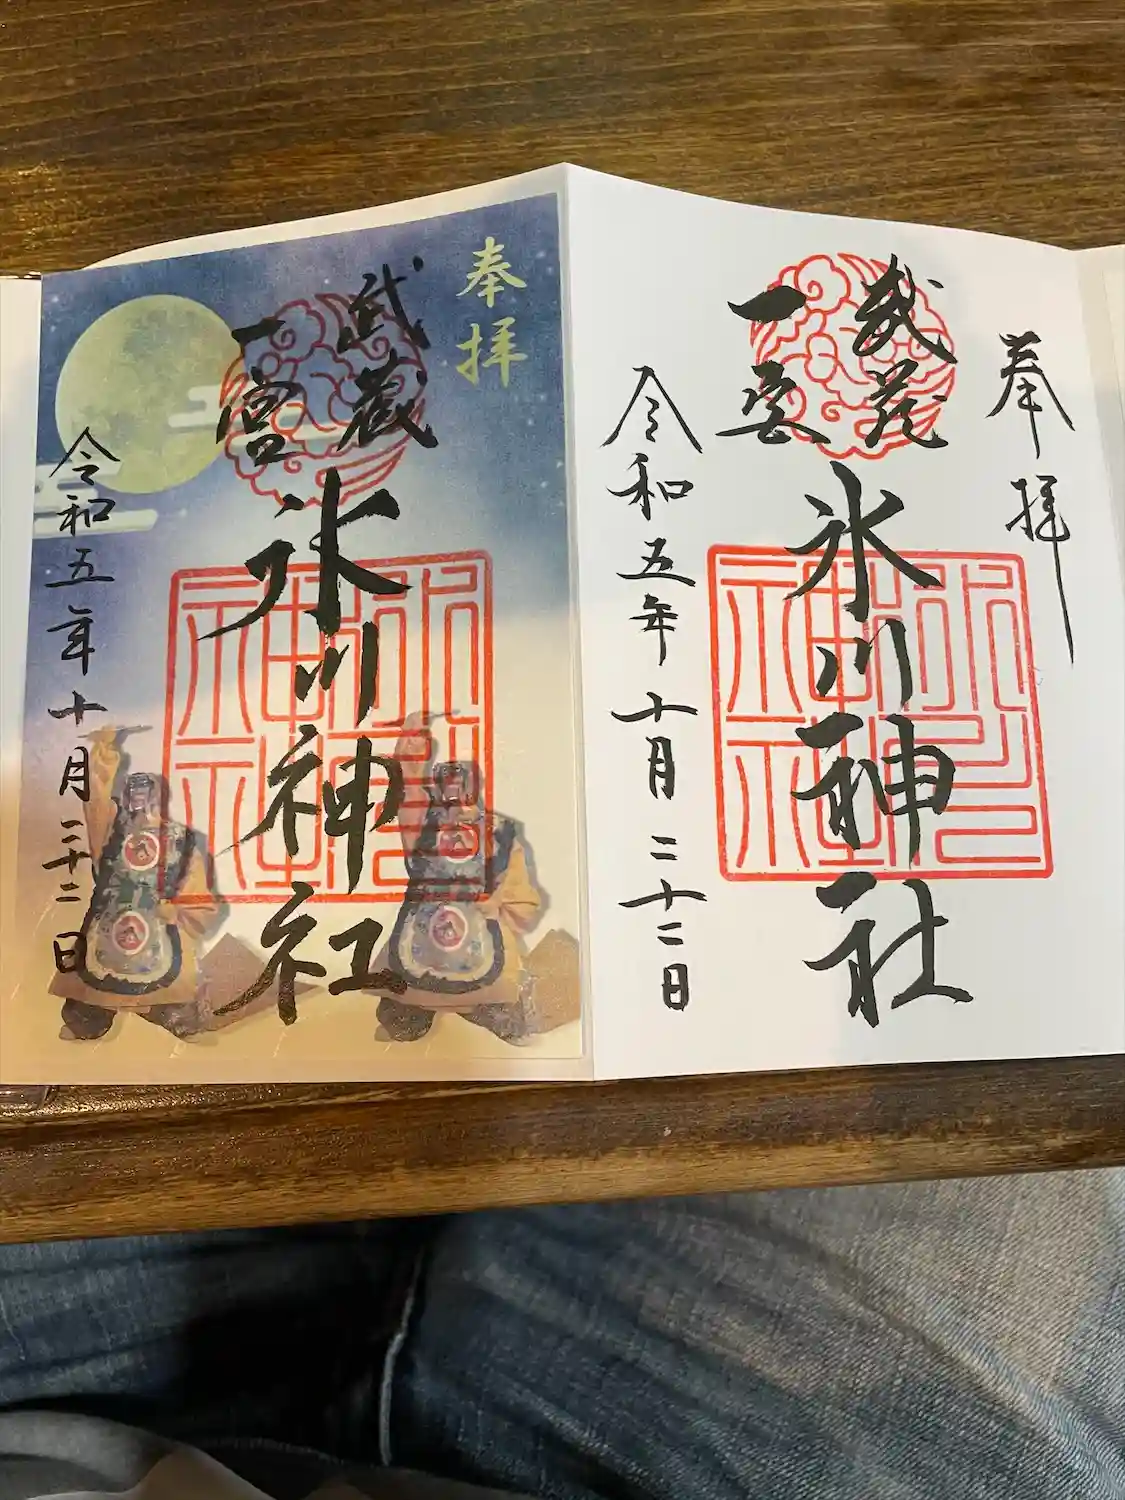 奉拝
武蔵
一宮
氷川神社
令和五年十月二十二日
奉拝
武蔵
一宮
氷川神社
令和五年十月二十二日
氷川
神社
氷川
神社